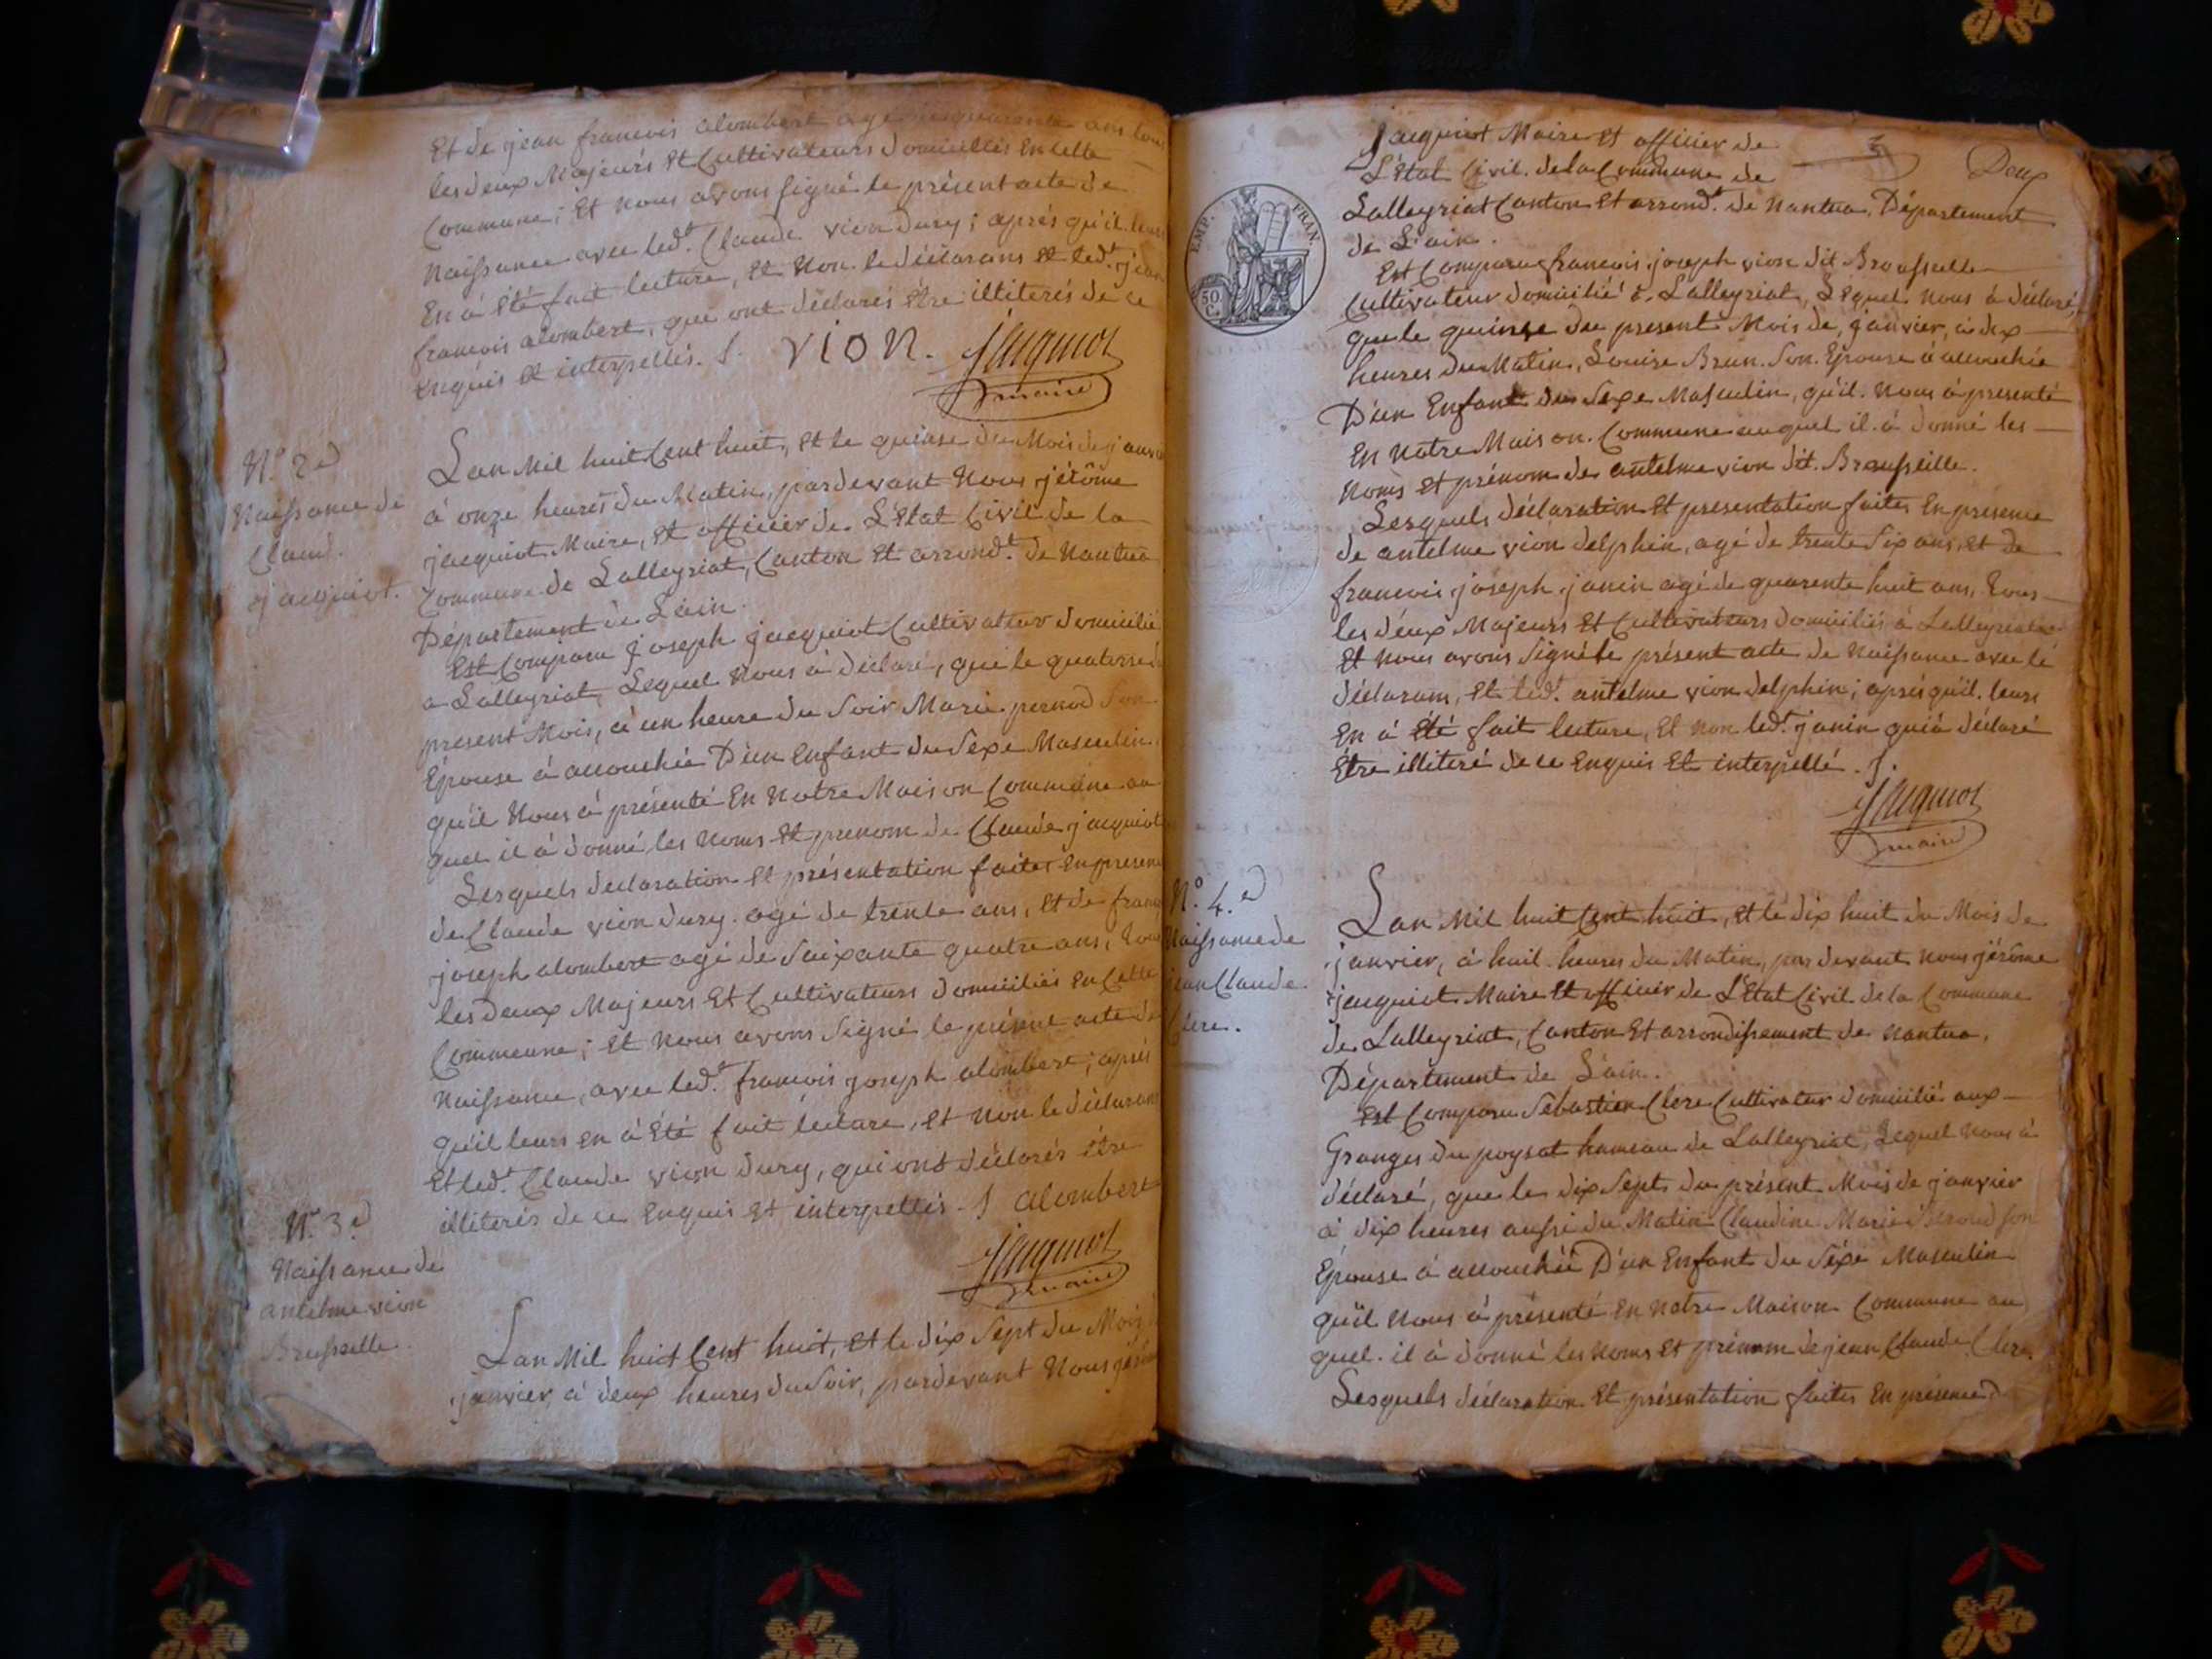 Et de jean francois alombert agé cinquante ans tous
les deux Majeurs Et Cultivateurs domicilies En Cette
Commune; Et nous avons Signé le présent acte de
Naissance avec led.t Claude vion dury; aprés qu'il leurs
En á Eté fait lecture, Et Non le déclarans Et led.t jean
francois alombert, que ont déclarés être illiterés de ce
Enquis Et interpellés. /.
VION.
Jacquiot
maire
N.o 2.e
Naissance de
Claud.
jacquiot.
Lan Mil huit Cent huit, Et le quinse du Mois de janvier
á onze heures du Matin, pardevant Nous jérôme
jacquiot Maire, Et officier de L'Etat Civil de la
Commune de Lalleyriat, Canton Et arrond.t de Nantua
Département de L'ain.
Est Comparu joseph jacquiot Cultivateur domicilié
a Lalleyriat, Lequel Nous á déclaré, que le quatorse
present Mois, á un heure du Soir Marie pernod Son
Epouse á accouchée D'un Enfant du Sexe Masculin
qu'il Nous á présenté En Notre Maison Commune au
quel il á donné les Noms Et prenom de Claude jacquiot
Lesquels declaration Et présentation faites En presence
de Claude vion dury agé de trente ans, Et de françois
joseph alombert agé de Soixante quatre ans, tous
les deux Majeurs Et Cultivateurs domiciliés En Cette
Commune; Et Nous avons Signé le présent acte de
Naissance, avec led.t francois joseph alombert; aprés
qu'il leurs En á Eté fait lecture, Et Non le déclarant
Et led.t Claude vion dury, qui ont déclarés être
illiterés de ce Enquis Et interpellés. / alombert
Jacquiot
maire
N.o 3.e
Naissance de
antelme vion
Brusseille.
Lan Mil huit Cent huit, Et le dix Sept du Mois
janvier, á deux heures du Soir, pardevant Nous jérôme
Jacquiot Maire Et officier de
L'Etat Civil de la Commune de
Deux
Lalleyriat Canton Et arrond.t de Nantua, Département
de L'ain.
EMP. FRAN.
50 C.
Est Comparu francois joseph vion dit Brousseille
Cultivateur domicilié á Lalleyriat, Lequel Nous á déclaré,
que le quinse du present Mois de janvier, á dix
heures du Matin, Louise Brun Son Epouse á accouchée
D'un Enfant du Sexe Masculin, qu'il Nous á presenté
En Notre Maison Commune auquel il á donné les
Noms Et prénom de antelme vion dit Brousseille.
Lesquels déclaration Et presentation faites En presence
de antelme vion delphin, agé de trente Six ans, Et de
francois joseph janin agé de quarente huit ans, tous
les deux Majeurs Et Cultivateurs domiciliés á Lalleyriat
Et Nous avons Signé le présent acte de Naissance avec le
déclarans, Et led.t antelme vion delphin; aprés qu'il leurs
En á Eté fait lecture, Et Non led.t janin qui á déclaré
Etre illiteré de ce Enquis Et interpellé. /.
Jacquiot
maire
N.o 4.e
Naissance de
jean Claude
Clere.
Lan Mil huit Cent huit, Et le dix huit du Mois de
janvier, á huit heures du Matin, par devant Nous jérôme
jacquiot Maire Et officier de L'Etat Civil de la Commune
de Lalleyriat, Canton Et arrondissement de Nantua,
Département de L'ain.
Est Comparu Sébastien Clere Cultivateur domicilié aux
Granges du poysat hameau de Lalleyriat, Lequel Nous á
déclaré, que le dix Sept du présent Mois de janvier
á dix heures aussi du Matin Claudine Marie Son
Epouse á accouchée D'un Enfant du Séxe Masculin
qu'il Nous á présenté En Notre Maison Commune au
quel il á donné les Noms Et prénom de jean Claude Clere.
Lesquels déclaration Et présentation faites En présence d